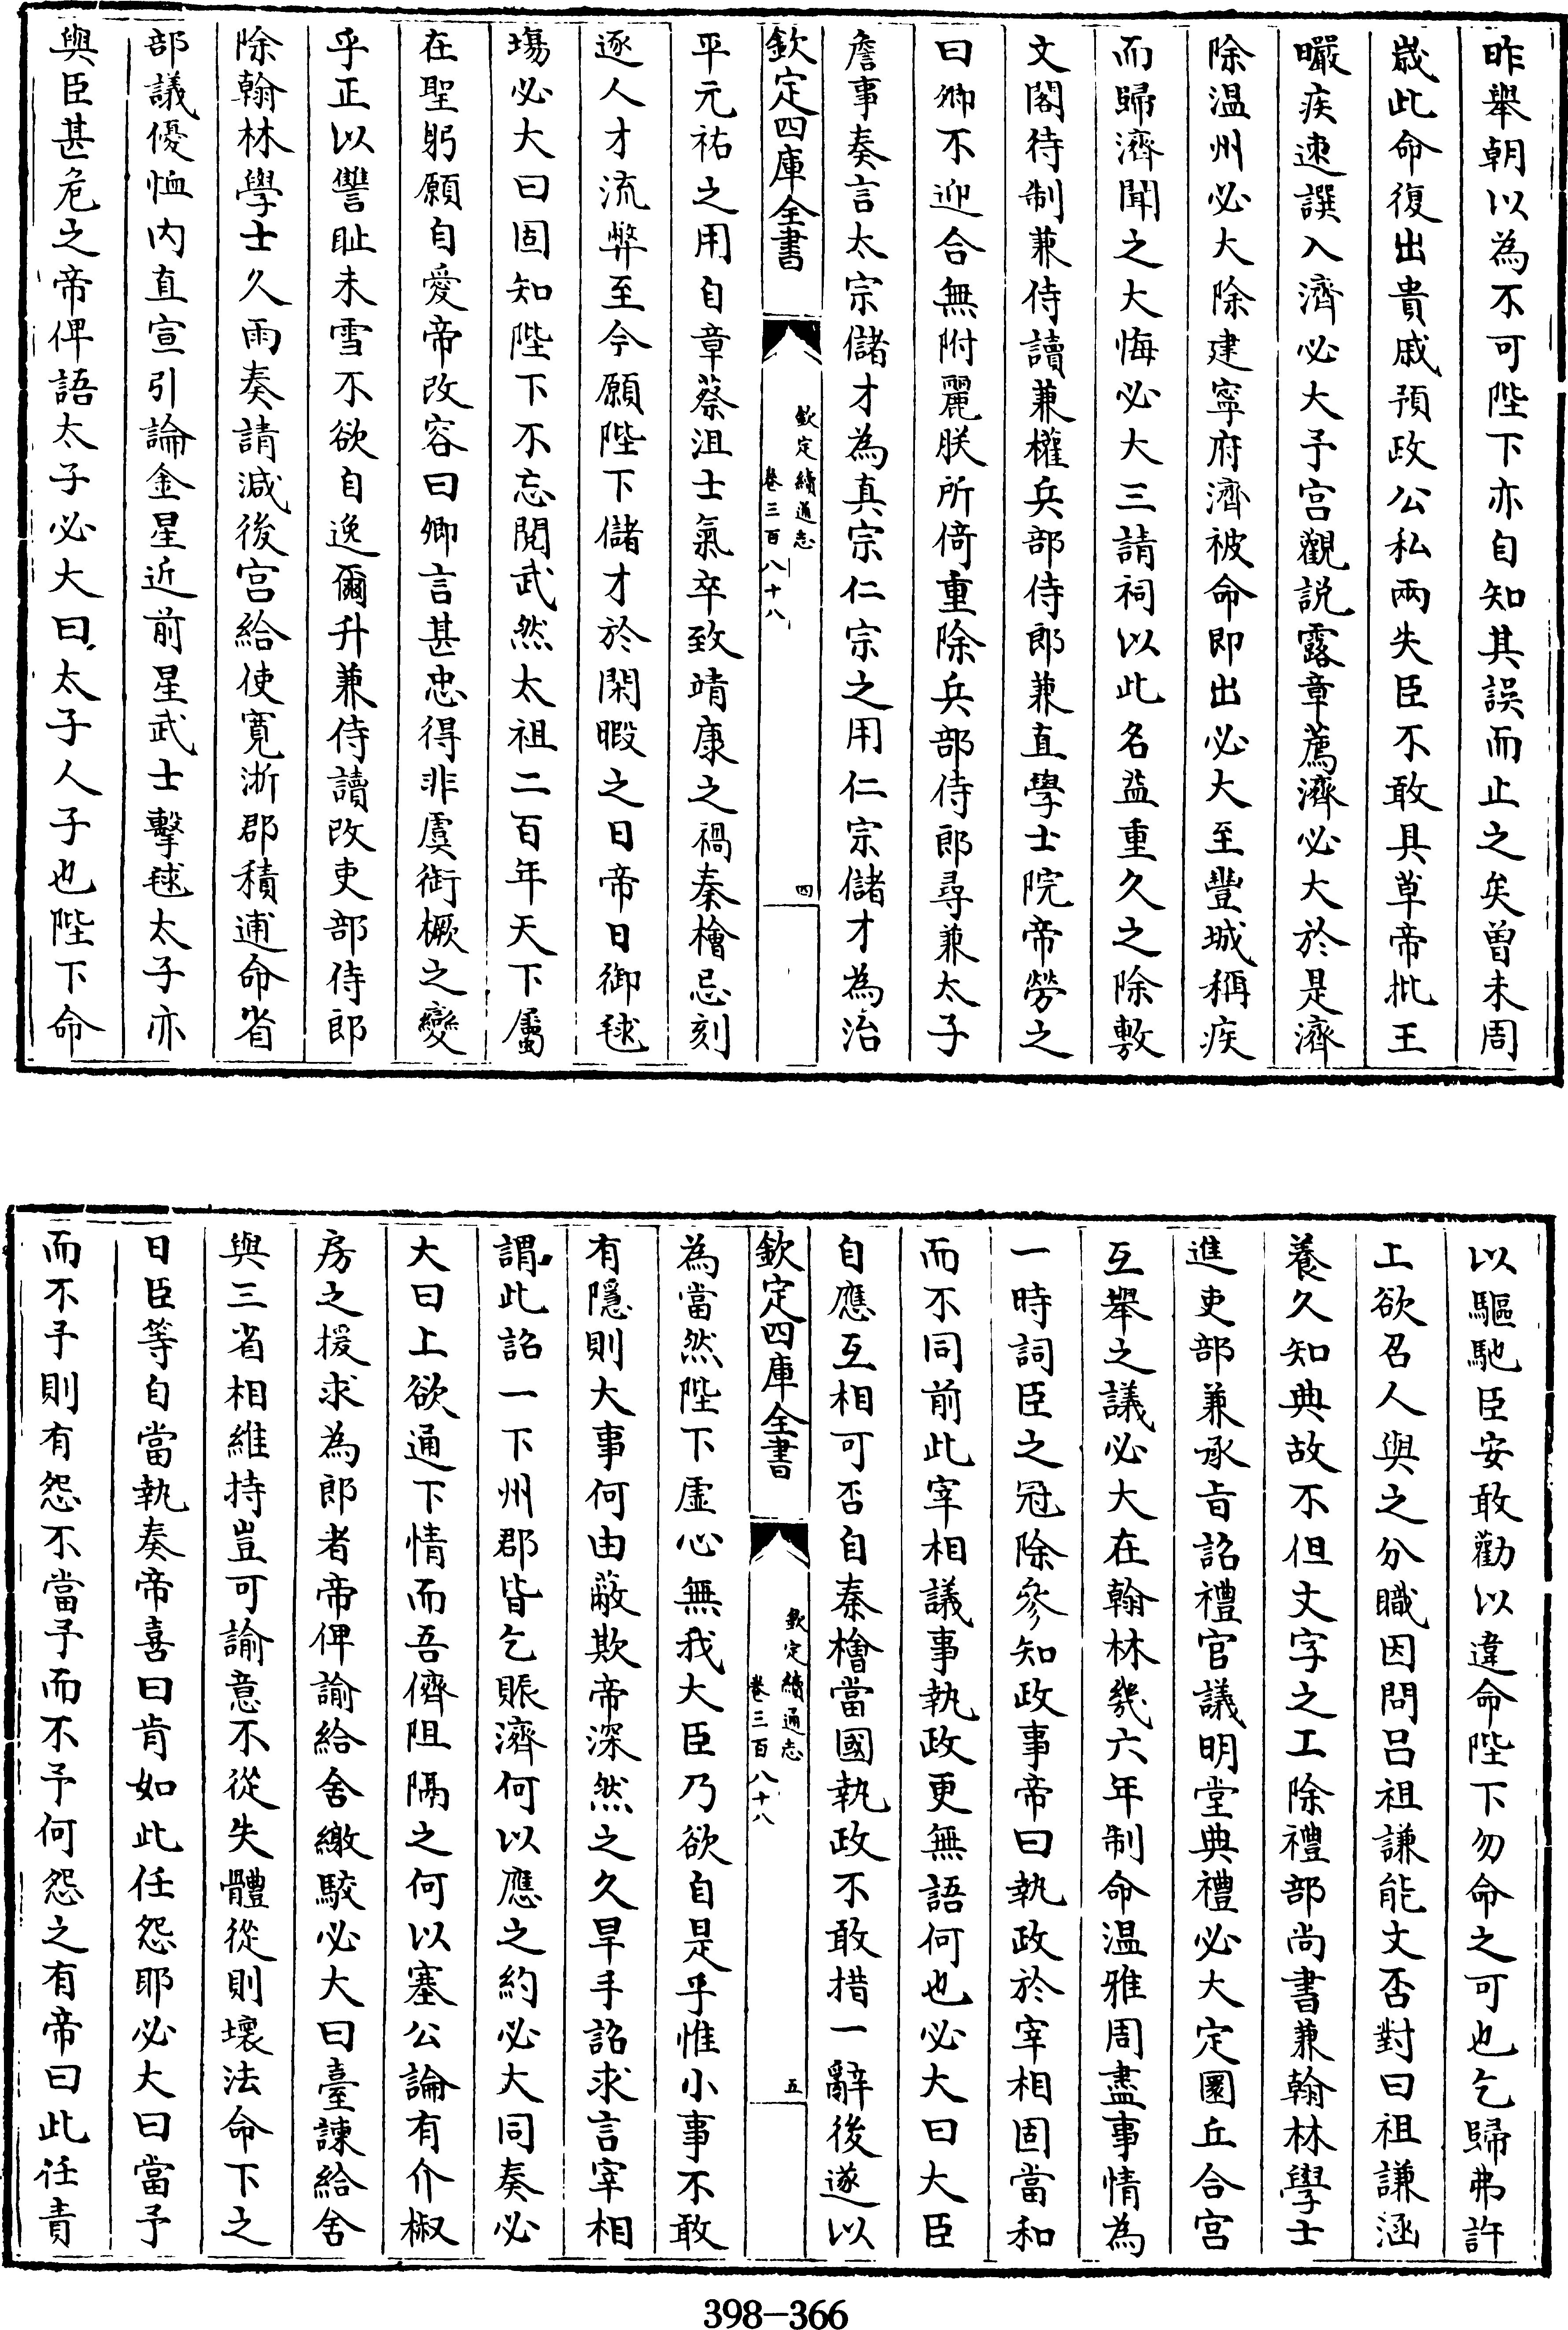 昨舉朝以為不可陛下亦自知其誤而止之矣曽未周
嵗此命復出貴戚預政公私兩失臣不敢具草帝批王
曮疾速譔入濟必大予宫觀説露章薦濟必大於是濟
除温州必大除建寧府濟被命即出必大至豐城稱疾
而歸濟聞之大悔必大三請祠以此名益重久之除敷
文閣待制兼侍讀兼權兵部侍郎兼直學士院帝勞之
曰卿不迎合無附麗朕所倚重除兵部侍郎尋兼太子
詹事奏言太宗儲才為真宗仁宗之用仁宗儲才為治
欽定四庫全書
欽定續通志
卷三百八十八
四
平元祐之用自章蔡沮士氣卒致靖康之禍秦檜忌刻
逐人才流弊至今願陛下儲才於閑暇之日帝日御毬
塲必大曰固知陛下不忘閱武然太祖二百年天下屬
在聖躬願自愛帝改容曰卿言甚忠得非虞銜橛之變
乎正以讐耻未雪不欲自逸爾升兼侍讀改吏部侍郎
除翰林學士久雨奏請減後宫給使寛浙郡積逋命省
部議優恤内直宣引論金星近前星武士擊毬太子亦
與臣甚危之帝俾語太子必大曰太子人子也陛下命
以驅馳臣安敢勸以違命陛下勿命之可也乞歸弗許
上欲召人與之分職因問吕祖謙能文否對曰祖謙涵
養久知典故不但文字之工除禮部尚書兼翰林學士
進吏部兼承㫖詔禮官議明堂典禮必大定圜丘合宫
互舉之議必大在翰林幾六年制命温雅周盡事情為
一時詞臣之冠除參知政事帝曰執政於宰相固當和
而不同前此宰相議事執政更無語何也必大曰大臣
自應互相可否自秦檜當國執政不敢措一辭後遂以
欽定四庫全書
欽定續通志
卷三百八十八
五
為當然陛下虚心無我大臣乃欲自是乎惟小事不敢
有隱則大事何由蔽欺帝深然之久旱手詔求言宰相
謂此詔一下州郡皆乞賑濟何以應之約必大同奏必
大曰上欲通下情而吾儕阻隔之何以塞公論有介椒
房之援求為郎者帝俾諭給舍繳駮必大曰臺諫給舍
與三省相維持豈可諭意不從失體從則壞法命下之
日臣等自當執奏帝喜曰肯如此任怨耶必大曰當予
而不予則有怨不當予而不予何怨之有帝曰此任責
398-366